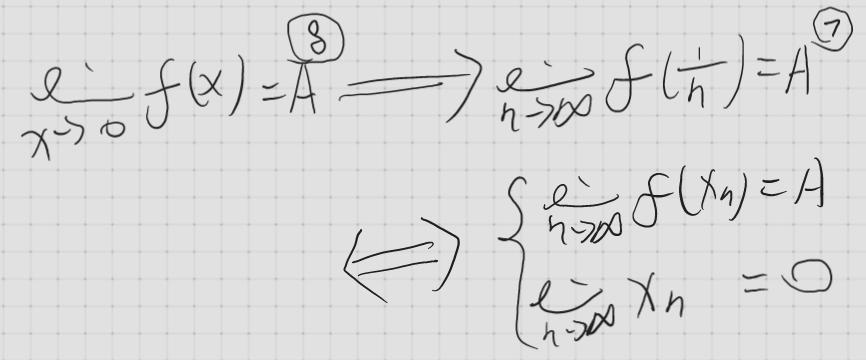 lim x→0 f(x) = A ⑧ ⟹ lim n→∞ f(1/n) = A ⑦
⟺ { lim n→∞ f(xn) = A
lim n→∞ xn = 0